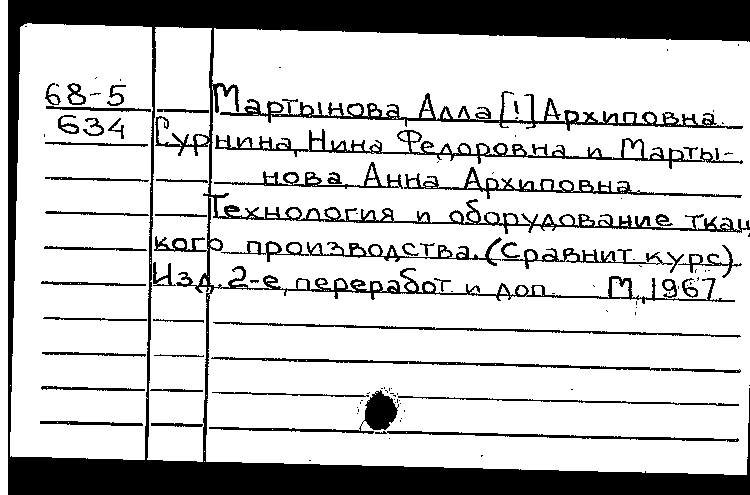 68-5 Мартынова, Алла [!] Архиповна.
634 Сурнина, Нина Федоровна и Марты-
нова, Анна Архиповна.
Технология и оборудование ткац
кого производства. (Сравнит. курс).
Изд. 2-е, переработ. и доп. М., 1967.